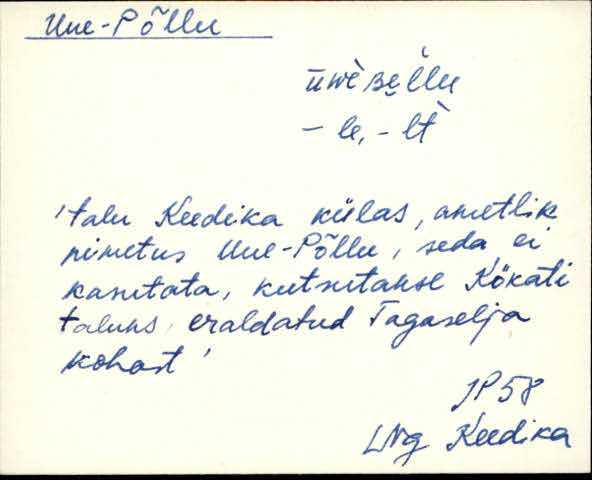 Uue-Põllu
– le, – lt
'talu Keedika külas, ametlik
nimetus Uue-Põllu, seda ei
kasutata, kutsutakse Kökati
taluks, eraldatud Tagaselja
kohast'
JP 58
LNg Keedika